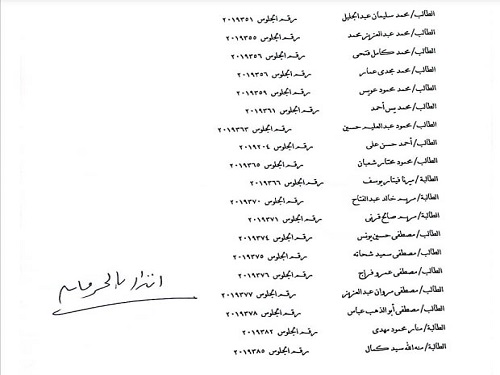 الطالب/ محمد سليمان عبدالجليل رقم الجلوس ٢٠١٩٣٥١
الطالب/ محمد عبدالعزيز محمد رقم الجلوس ٢٠١٩٣٥٥
الطالب/ محمد كامل فتحى رقم الجلوس ٢٠١٩٣٥٦
الطالب/ محمد مجدى عمار رقم الجلوس ٢٠١٩٣٥٦
الطالب/ محمد محمود عويس رقم الجلوس ٢٠١٩٣٥٩
الطالب/ محمد يس أحمد رقم الجلوس ٢٠١٩٣٦١
الطالب/ محمود عبدالعليم حسين رقم الجلوس ٢٠١٩٣٦٣
الطالب/ أحمد حسن على رقم الجلوس ٢٠١٩٢٠٤
الطالب/ محمود مختار شعبان رقم الجلوس ٢٠١٩٣٦٥
الطالبة/ ميرنا فيتار يوسف رقم الجلوس ٢٠١٩٣٦٦
الطالبة/ مريم خالد عبدالفتاح رقم الجلوس ٢٠١٩٣٧٠
الطالبة/ مريم صالح قرنى رقم الجلوس ٢٠١٩٣٧١
الطالب/ مصطفى حسين يونس رقم الجلوس ٢٠١٩٣٧٤
الطالب/ مصطفى سعيد شحاته رقم الجلوس ٢٠١٩٣٧٥
الطالب/ مصطفى عمرو فراج رقم الجلوس ٢٠١٩٣٧٦
الطالب/ مصطفى مروان عبدالعزيز رقم الجلوس ٢٠١٩٣٧٧
الطالب/ مصطفى أبوالذهب عباس رقم الجلوس ٢٠١٩٣٧٨
الطالبة/ منار محمود مهدى رقم الجلوس ٢٠١٩٣٨٢
الطالبة/ منه الله سيد كمال رقم الجلوس ٢٠١٩٣٨٥
انذار بالحرمان